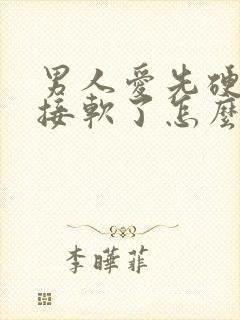 男人愛先硬
接軟了怎麼
李曄菲